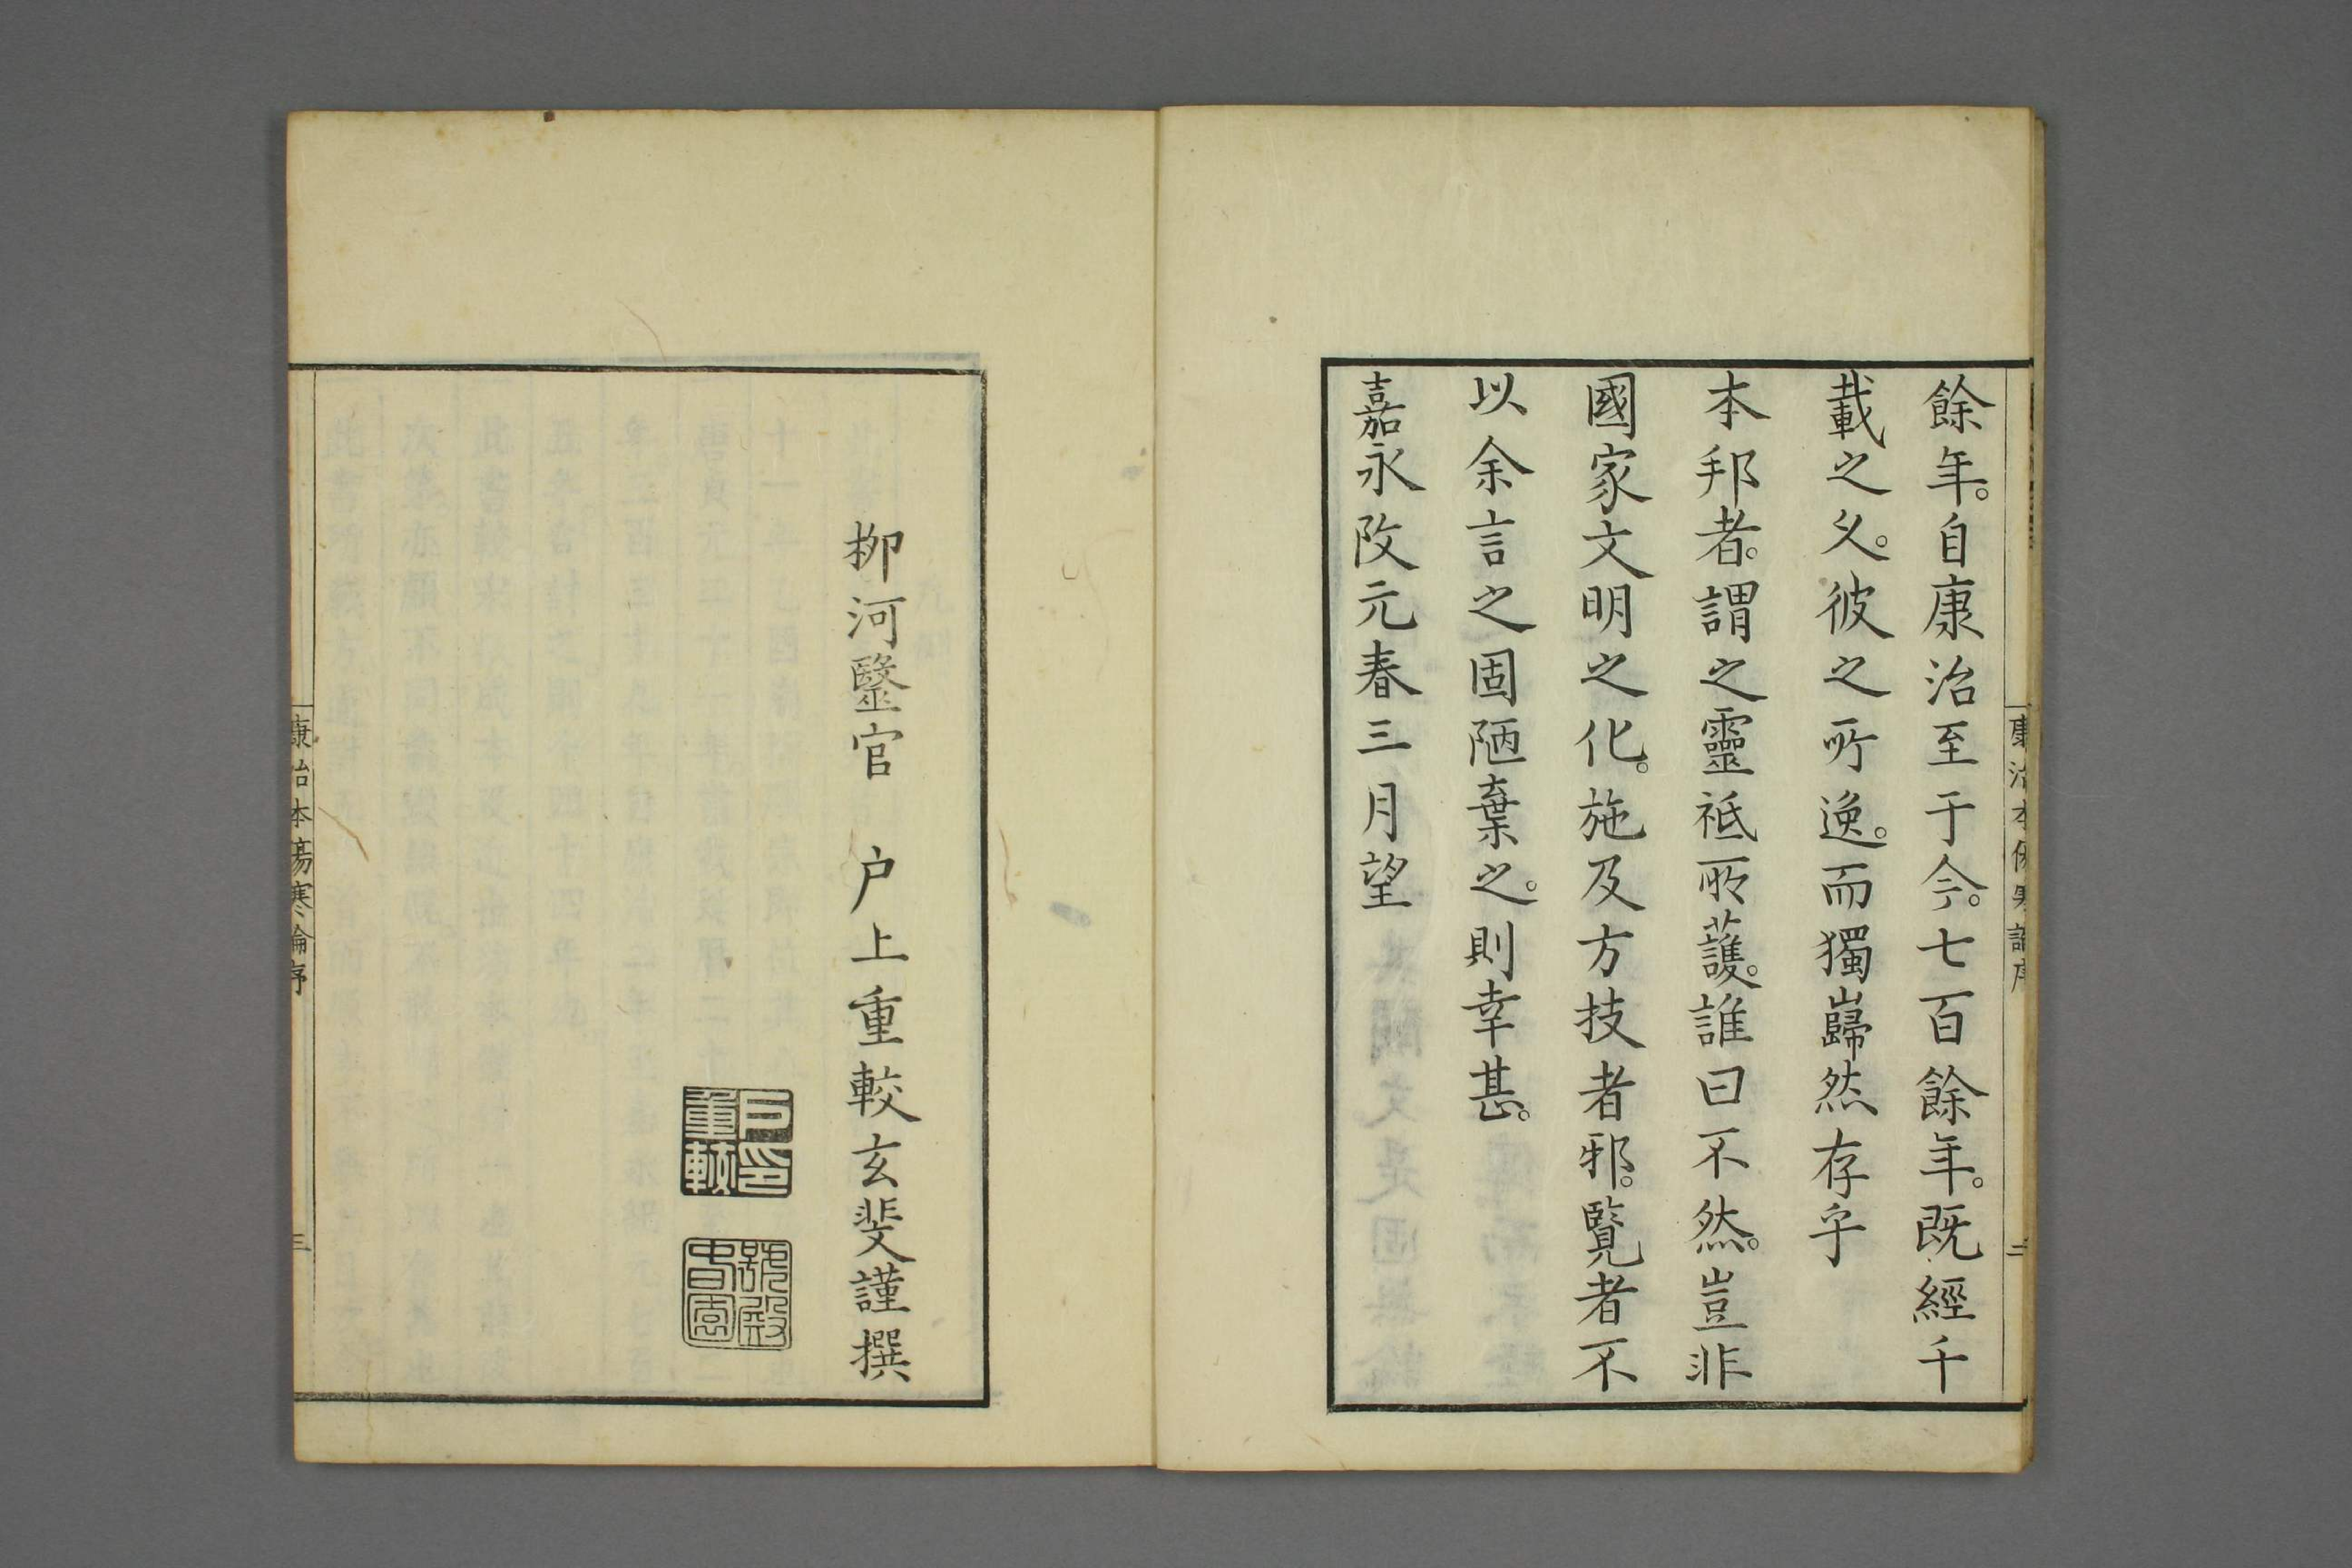 餘年。自康治至于今。七百餘年。既經千
載之久。彼之所逸。而獨巋然存乎
本邦者。謂之靈祗所護。誰曰不然。豈非
國家文明之化。施及方技者邪。覽者不
以余言之固陋棄之。則幸甚。
嘉永改元春三月望
柳河毉官　户上重較玄斐謹撰
戸印重較
康治本傷寒論序
三